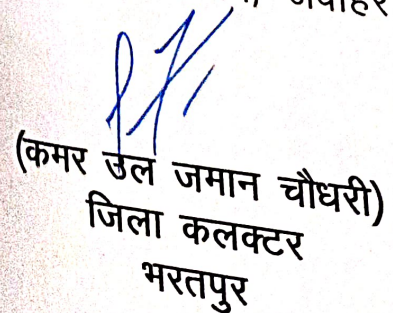 जवाहर
(कमर उल जमान चौधरी)
जिला कलक्टर
भरतपुर